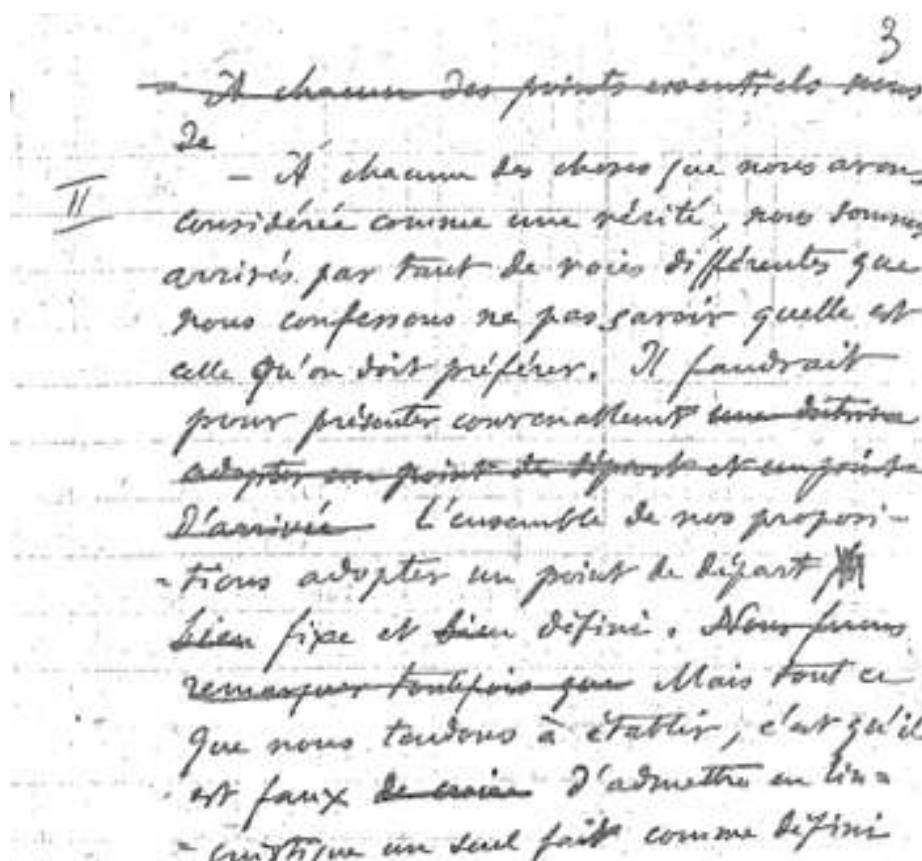 3
- A chacun des points essentiels nous
de
- A chacune des choses que nous avons
II
considérée comme une vérité, nous sommes
arrivés par tant de voies différentes que
nous confessons ne pas savoir quelle est
celle qu'on doit préférer. Il faudrait
pour présenter convenablement une
adopter un point de départ et un point
d'arrivée L'ensemble de nos proposi-
-tions adopter un point de départ
bien fixe et bien défini. Nous
remarquer toutefois que Mais tout ce
que nous tendons à établir, c'est qu'il
est faux de croire d'admettre en lin=
=guistique un seul fait comme défini